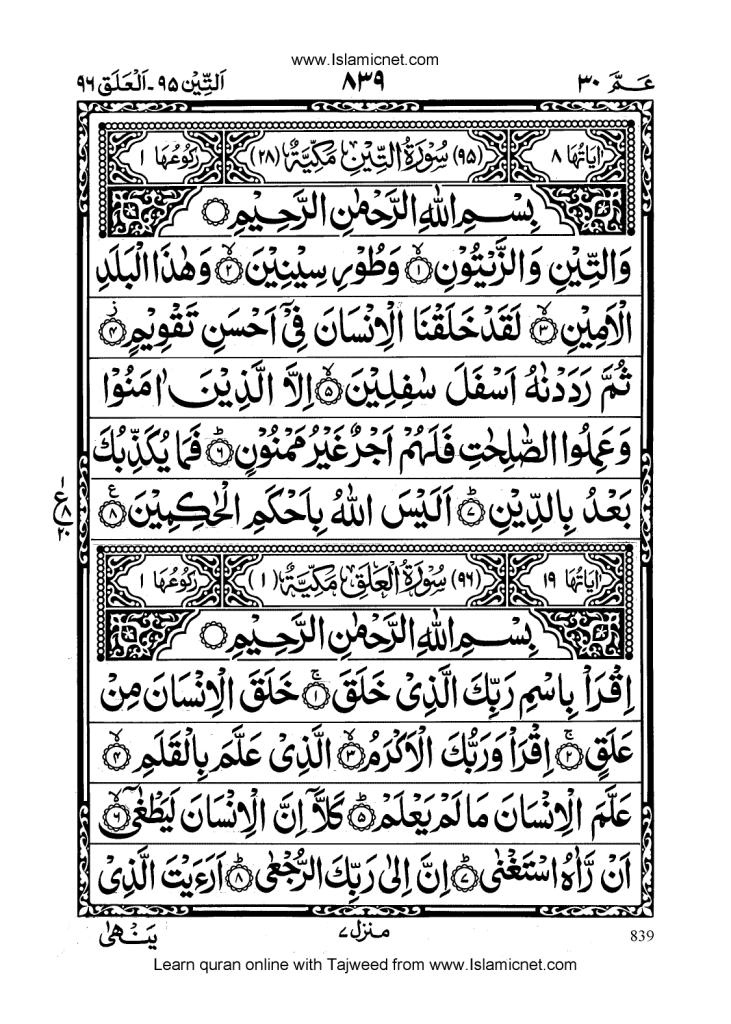 www.Islamicnet.com
عَمَّ ۳۰ ۸۳۹ اَلتِّيْن ۹۵ - اَلْعَلَق ۹۶
اٰيَاتُهَا ۸ (۹۵) سُوْرَةُ التِّيْنِ مَكِّيَّةٌ (۲۸) رُكُوْعُهَا ۱
بِسْمِ اللّٰهِ الرَّحْمٰنِ الرَّحِيْمِ ۝
وَالتِّيْنِ وَالزَّيْتُوْنِ ۝۱ۙ وَطُوْرِ سِيْنِيْنَ ۝۲ۙ وَهٰذَا الْبَلَدِ
الْاَمِيْنِ ۝۳ۙ لَقَدْ خَلَقْنَا الْاِنْسَانَ فِيْۤ اَحْسَنِ تَقْوِيْمٍ ۝۴ز
ثُمَّ رَدَدْنٰهُ اَسْفَلَ سٰفِلِيْنَ ۝۵ۙ اِلَّا الَّذِيْنَ اٰمَنُوْا
وَعَمِلُوا الصّٰلِحٰتِ فَلَهُمْ اَجْرٌ غَيْرُ مَمْنُوْنٍ ۝۶ؕ فَمَا يُكَذِّبُكَ
بَعْدُ بِالدِّيْنِ ۝۷ؕ اَلَيْسَ اللّٰهُ بِاَحْكَمِ الْحٰكِمِيْنَ ۝۸ع
۱
ع۸
۲۰
اٰيَاتُهَا ۱۹ (۹۶) سُوْرَةُ الْعَلَقِ مَكِّيَّةٌ (۱) رُكُوْعُهَا ۱
بِسْمِ اللّٰهِ الرَّحْمٰنِ الرَّحِيْمِ ۝
اِقْرَاْ بِاسْمِ رَبِّكَ الَّذِيْ خَلَقَ ۝۱ۚ خَلَقَ الْاِنْسَانَ مِنْ
عَلَقٍ ۝۲ۚ اِقْرَاْ وَرَبُّكَ الْاَكْرَمُ ۝۳ۙ الَّذِيْ عَلَّمَ بِالْقَلَمِ ۝۴ۙ
عَلَّمَ الْاِنْسَانَ مَا لَمْ يَعْلَمْ ۝۵ؕ كَلَّاۤ اِنَّ الْاِنْسَانَ لَيَطْغٰۤى ۝۶ۙ
اَنْ رَّاٰهُ اسْتَغْنٰى ۝۷ؕ اِنَّ اِلٰى رَبِّكَ الرُّجْعٰى ۝۸ؕ اَرَءَيْتَ الَّذِيْ
يَنْهٰى منزل ۷ 839
Learn quran online with Tajweed from www.Islamicnet.com